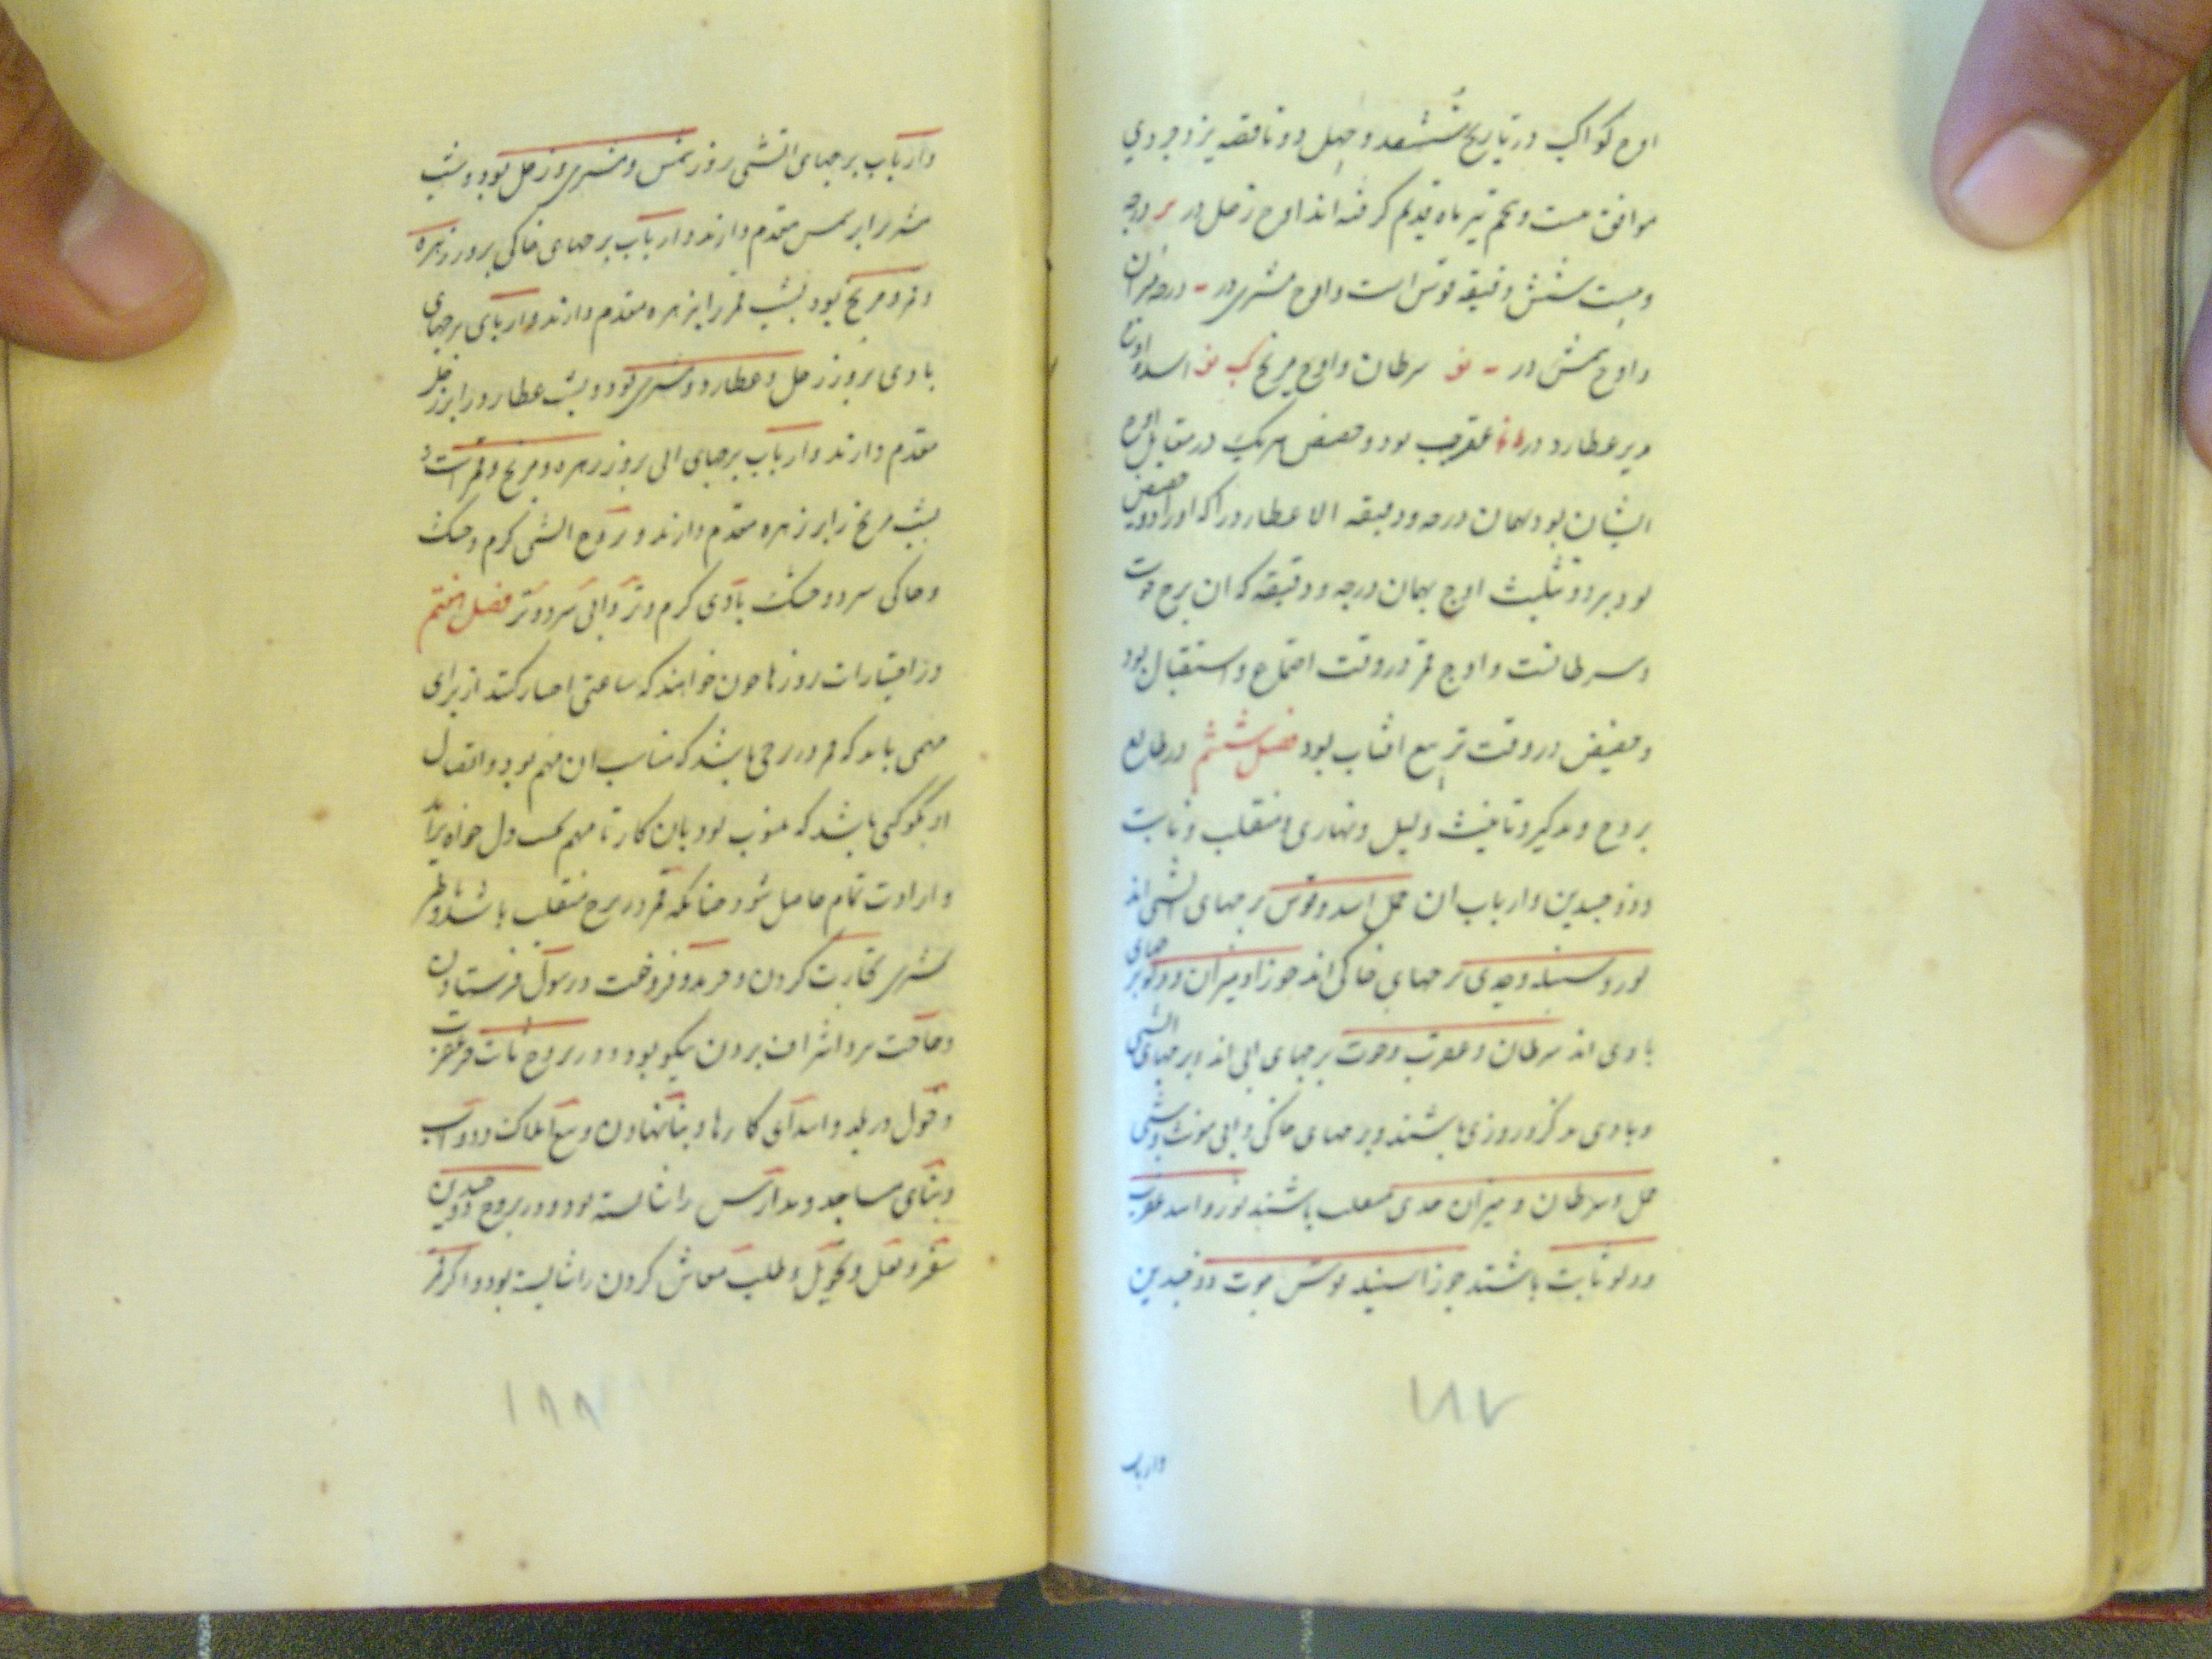 اوج کواکب در تاریخ ششصد و چهل دو ناقصه یزدجردی
موافق بیست و یکم تیر ماه قدیم گرفته اند اوج زحل در درجه
و بیست شش دقیقه قوس است و اوج مشتری در درجه میزان
و اوج شمس در سرطان و اوج مریخ اسد و اوج
دیر عطارد در عقرب بود و حضیض هر یک در مقابل اوج
ایشان بود بهمان درجه و دقیقه الا عطارد را که او را دو حضیض
بود بر دو تثلیث اوج بهمان درجه و دقیقه که ان برج حوت
و سرطانست و اوج قمر در وقت اجتماع و استقبال بود
و حضیض در وقت تربیع افتاب بود فصل ششم در طالع
بروج و تذکیر و تانیث و لیل و نهاری و منقلب و ثابت
و ذو جسدین و ارباب ان حمل اسد و قوس برجهای اتشی اند
ثور و سنبله و جدی برجهای خاکی اند جوزا و میزان و دلو برجهای
بادی اند سرطان و عقرب و حوت برجهای ابی اند و برجهای اتشی
و بادی مذکر و روزی باشند و برجهای خاکی و ابی مونث و شبی
حمل و سرطان و میزان جدی منقلب باشند ثور و اسد عقرب
و دلو ثابت باشند جوزا سنبله قوس حوت ذو جسدین
۱۸۷
وارباب
وارباب برجهای اتشی روز شمس و مشتری و زحل بود و بشب
مشتری را بر شمس مقدم دارند و ارباب برجهای خاکی بروز زهره
و قمر و مریخ بود بشب قمر را بر زهره مقدم دارند و اربای برجهای
بادی بروز زحل و عطارد و مشتری بود و بشب عطارد را بر زحل
مقدم دارند و ارباب برجهای ابی بروز زهره و مریخ و قمر است و
بشب مریخ را بر زهره مقدم دارند و بروج اتشی گرم و خشک
و خاکی سرد و خشک بادی گرم و تر و ابی سرد و تر فصل هفتم
در اختیارات روزها چون خواهند که ساعتی اختیار کنند از برای
مهمی باید که قمر در برجی باشد که مناسب ان مهم بود و اتصال
او بکوکبی باشد که منسوب بود بان کار تا مهم بحسب دل خواه براید
و ارادت تمام حاصل شود چنانکه قمر در برج منقلب باشد و ناظر
بمشتری تجارت کردن و خرید و فروخت و رسول فرستادن
و حاجت نزد اشراف بردن نیکو بود و در بروج ثابت قمر عقرب
و دخول در بلد و ابتدای کارها و بنا نهادن و بیع املاک و دواب
و بنای مساجد و مدارس را شایسته بود و در بروج ذو جسدین
سفر و نقل و تحویل و طلب معاش کردن را شایسته بود و اگر قمر
۱۸۸